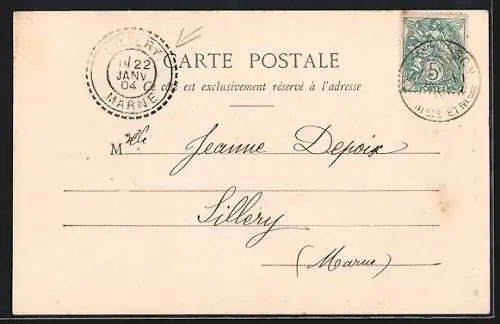 SILLERY
22
JANV
04
MARNE
CARTE POSTALE
Ce côté est exclusivement réservé à l'adresse
5
POSTES
ET M
Mlle Jeanne Depoix
Sillery
(Marne)